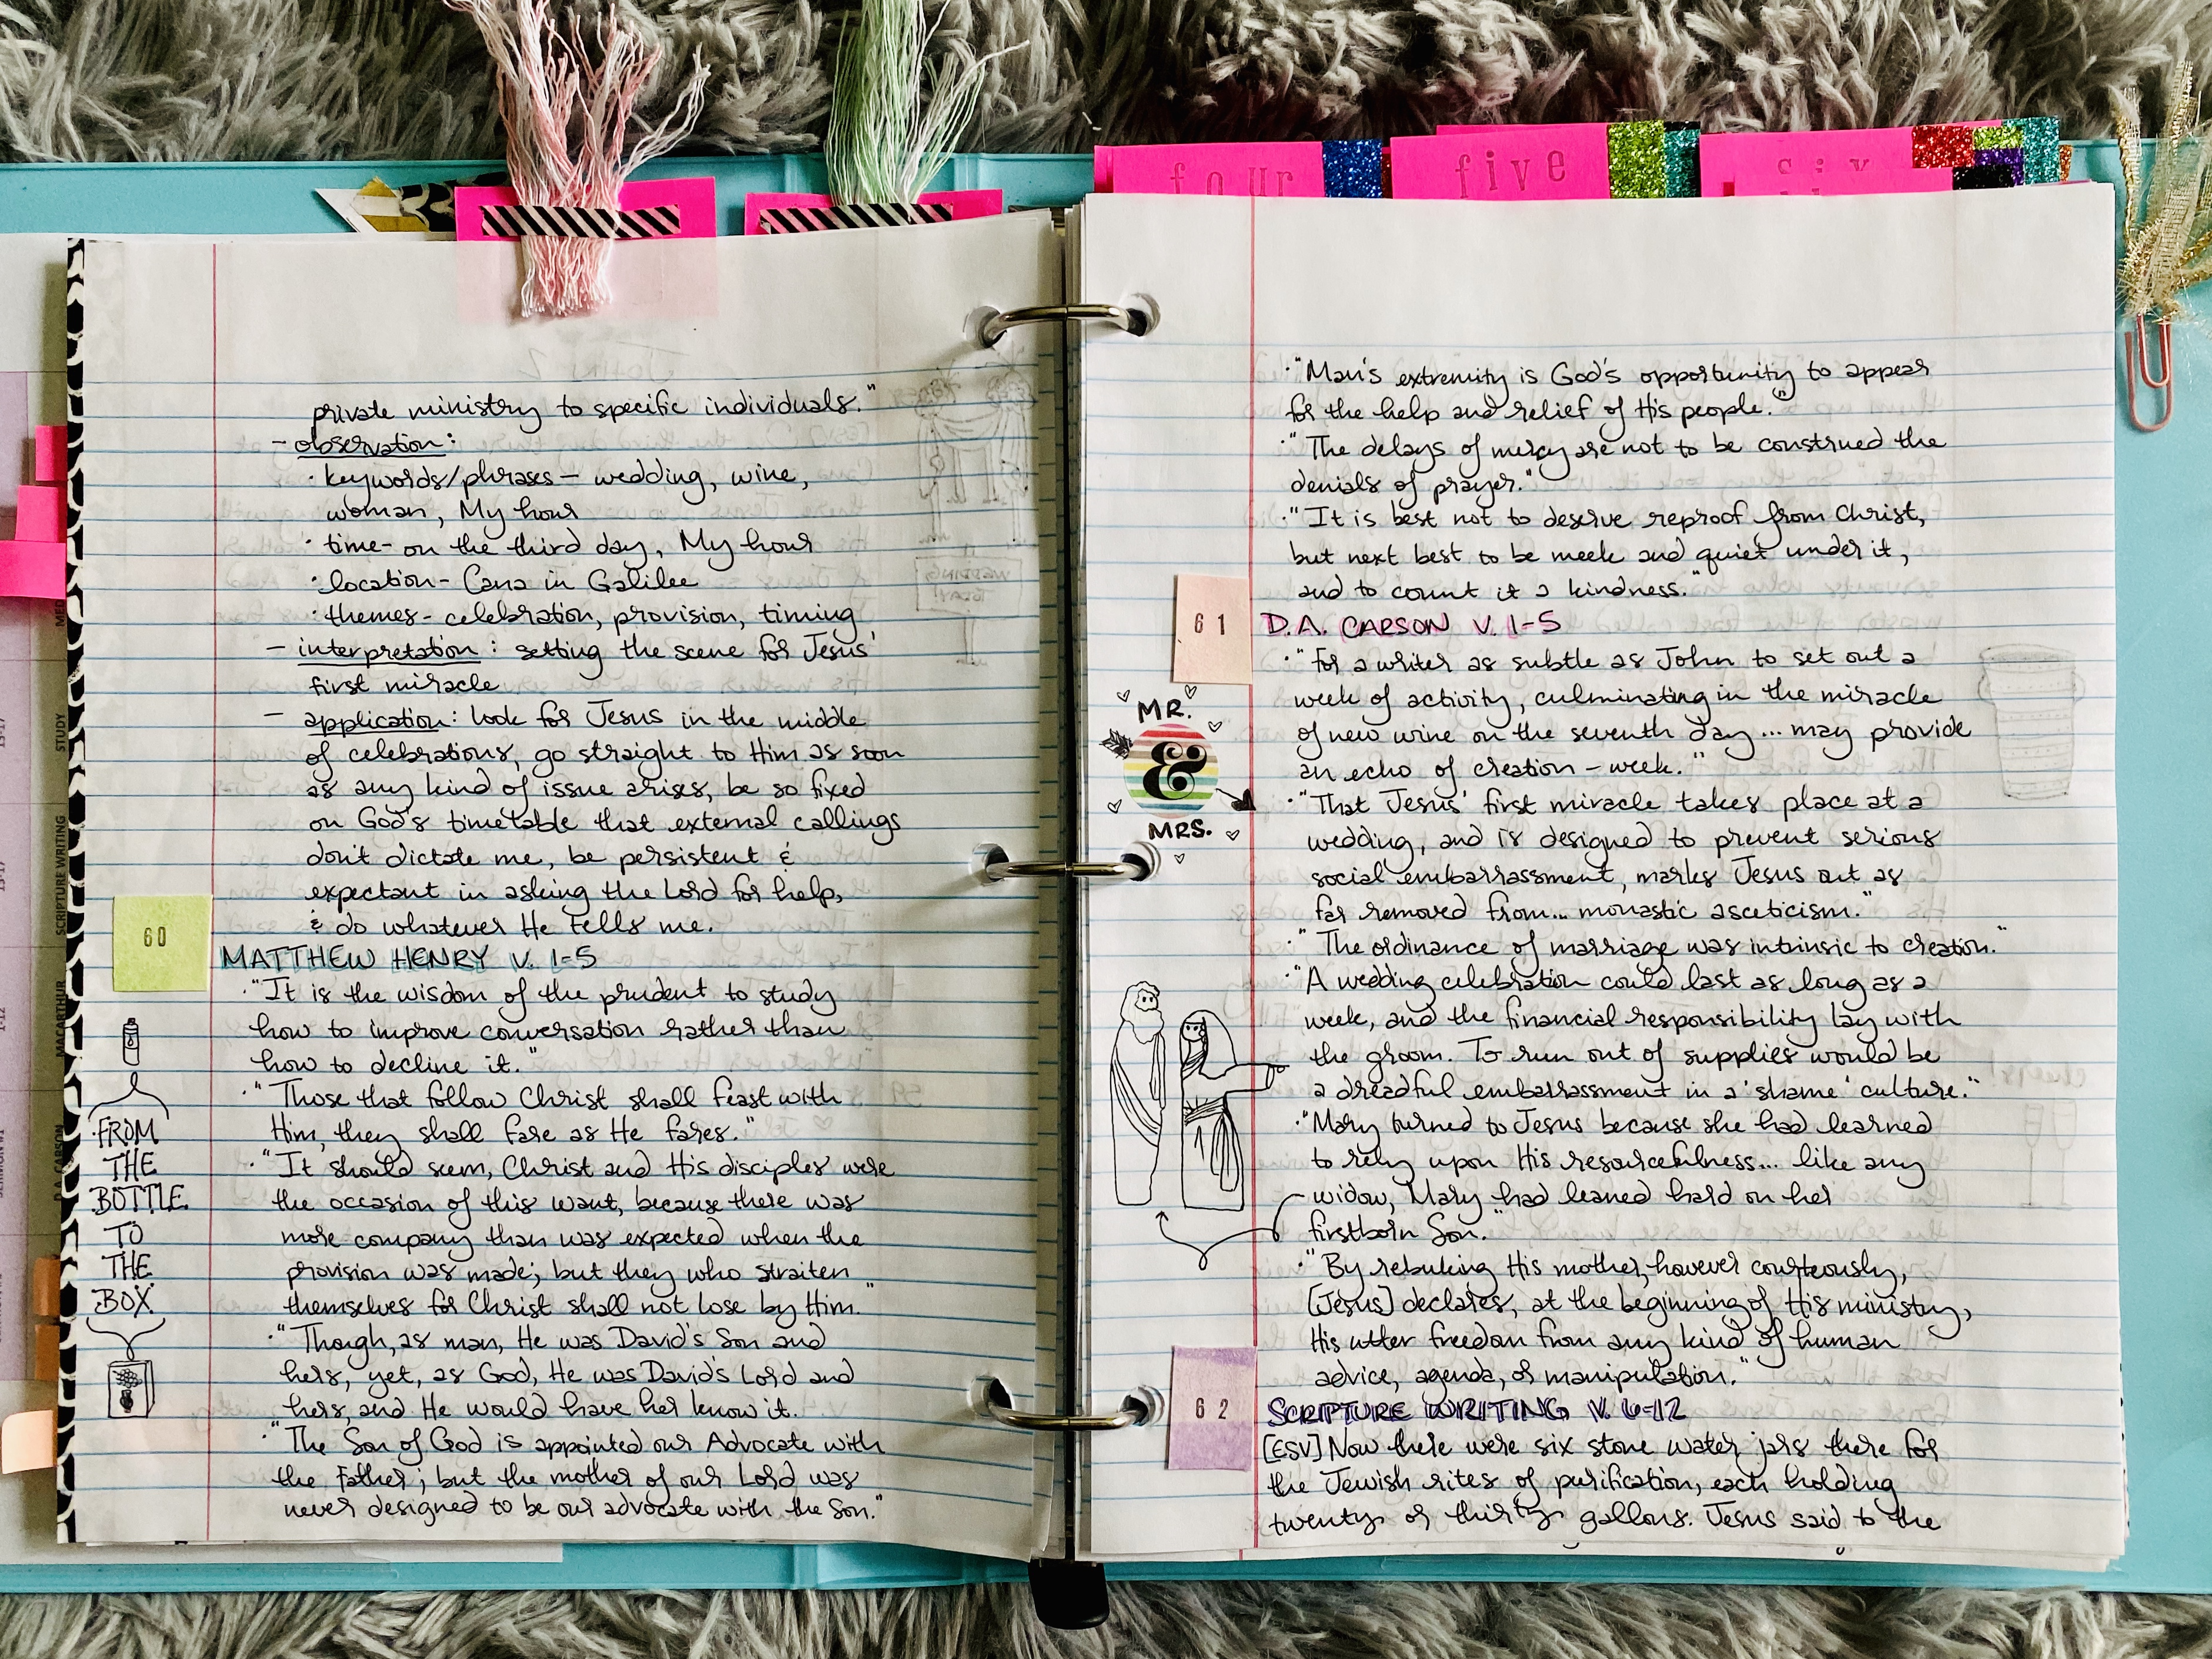 four
five
six
private ministry to specific individuals."
- observation:
· keywords/phrases - wedding, wine,
woman, My hour
· time - on the third day, My hour
· location - Cana in Galilee
· themes - celebration, provision, timing
- interpretation: setting the scene for Jesus'
first miracle
- application: look for Jesus in the middle
of celebrations, go straight to Him as soon
as any kind of issue arises, be so fixed
on God's timetable that external callings
don't dictate me, be persistent &
expectant in asking the Lord for help,
& do whatever He tells me.
60
MATTHEW HENRY V. 1-5
· "It is the wisdom of the prudent to study
how to improve conversation rather than
how to decline it."
· "Those that follow Christ shall feast with
Him, they shall fare as He fares."
· "It should seem, Christ and His disciples were
the occasion of this want, because there was
more company than was expected when the
provision was made; but they who straiten
themselves for Christ shall not lose by Him."
· "Though, as man, He was David's Son and
hers, yet, as God, He was David's Lord and
hers, and He would have her know it.
· "The Son of God is appointed our Advocate with
the Father; but the mother of our Lord was
never designed to be our advocate with the Son."
FROM
THE
BOTTLE
TO
THE
BOX
STUDY
SCRIPTURE WRITING
MACARTHUR
1-12
D.A. CARSON
· "Man's extremity is God's opportunity to appear
for the help and relief of His people."
· "The delays of mercy are not to be construed the
denials of prayer."
· "It is best not to deserve reproof from Christ,
but next best to be meek and quiet under it,
and to count it a kindness."
61
D.A. CARSON V. 1-5
· "For a writer as subtle as John to set out a
week of activity, culminating in the miracle
of new wine on the seventh day... may provide
an echo of creation-week."
· "That Jesus' first miracle takes place at a
wedding, and is designed to prevent serious
social embarrassment, marks Jesus out as
far removed from... monastic asceticism."
· "The ordinance of marriage was intrinsic to creation."
· "A wedding celebration could last as long as a
week, and the financial responsibility lay with
the groom. To run out of supplies would be
a dreadful embarrassment in a 'shame' culture."
· "Mary turned to Jesus because she had learned
to rely upon His resourcefulness... like any
widow, Mary had leaned hard on her
firstborn Son."
· "By rebuking His mother, however courteously,
[Jesus] declares, at the beginning of His ministry,
His utter freedom from any kind of human
advice, agenda, or manipulation."
MR.
&
MRS.
62
SCRIPTURE WRITING V. 6-12
[ESV] Now there were six stone water jars there for
the Jewish rites of purification, each holding
twenty or thirty gallons. Jesus said to the